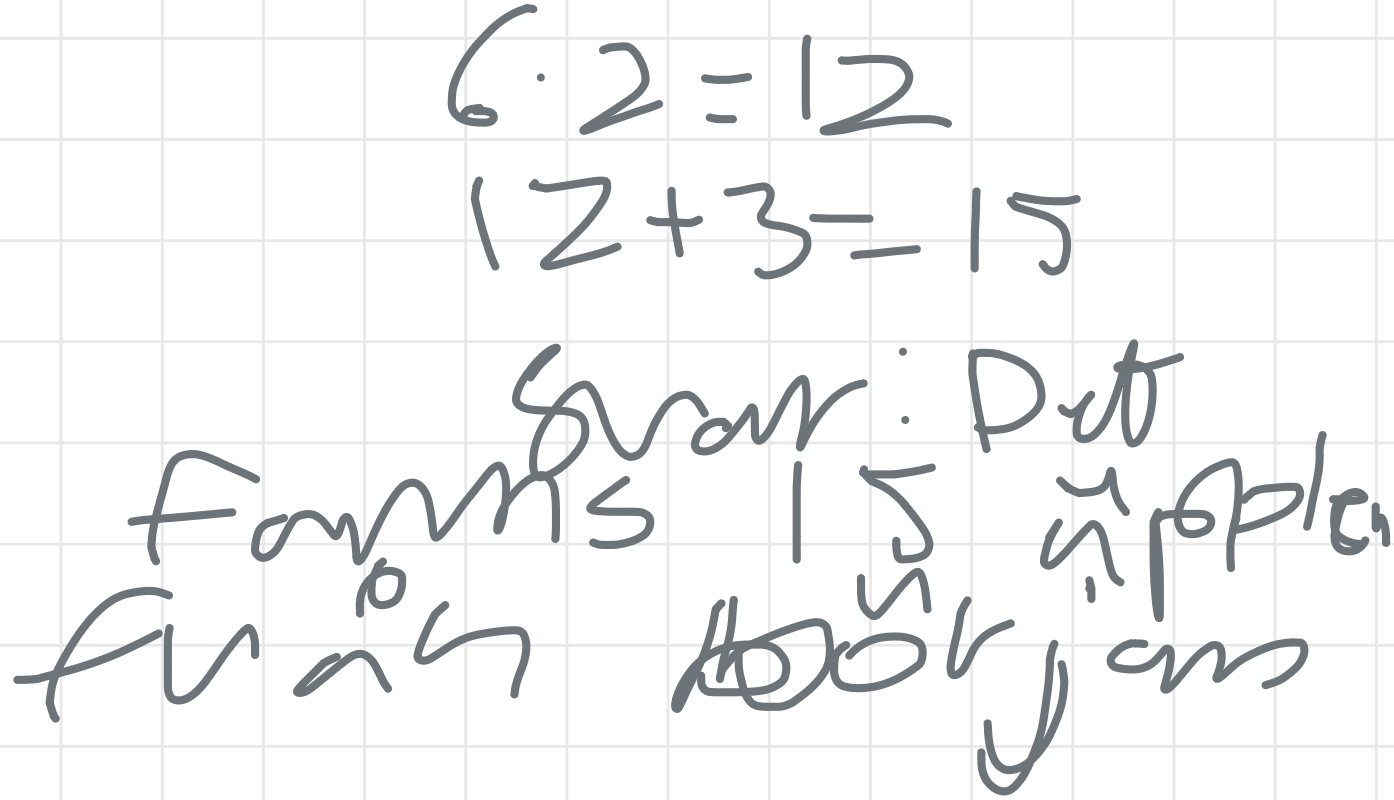 6 · 2 = 12
12 + 3 = 15
Svar: Det
fanns 15 äpplen
från början